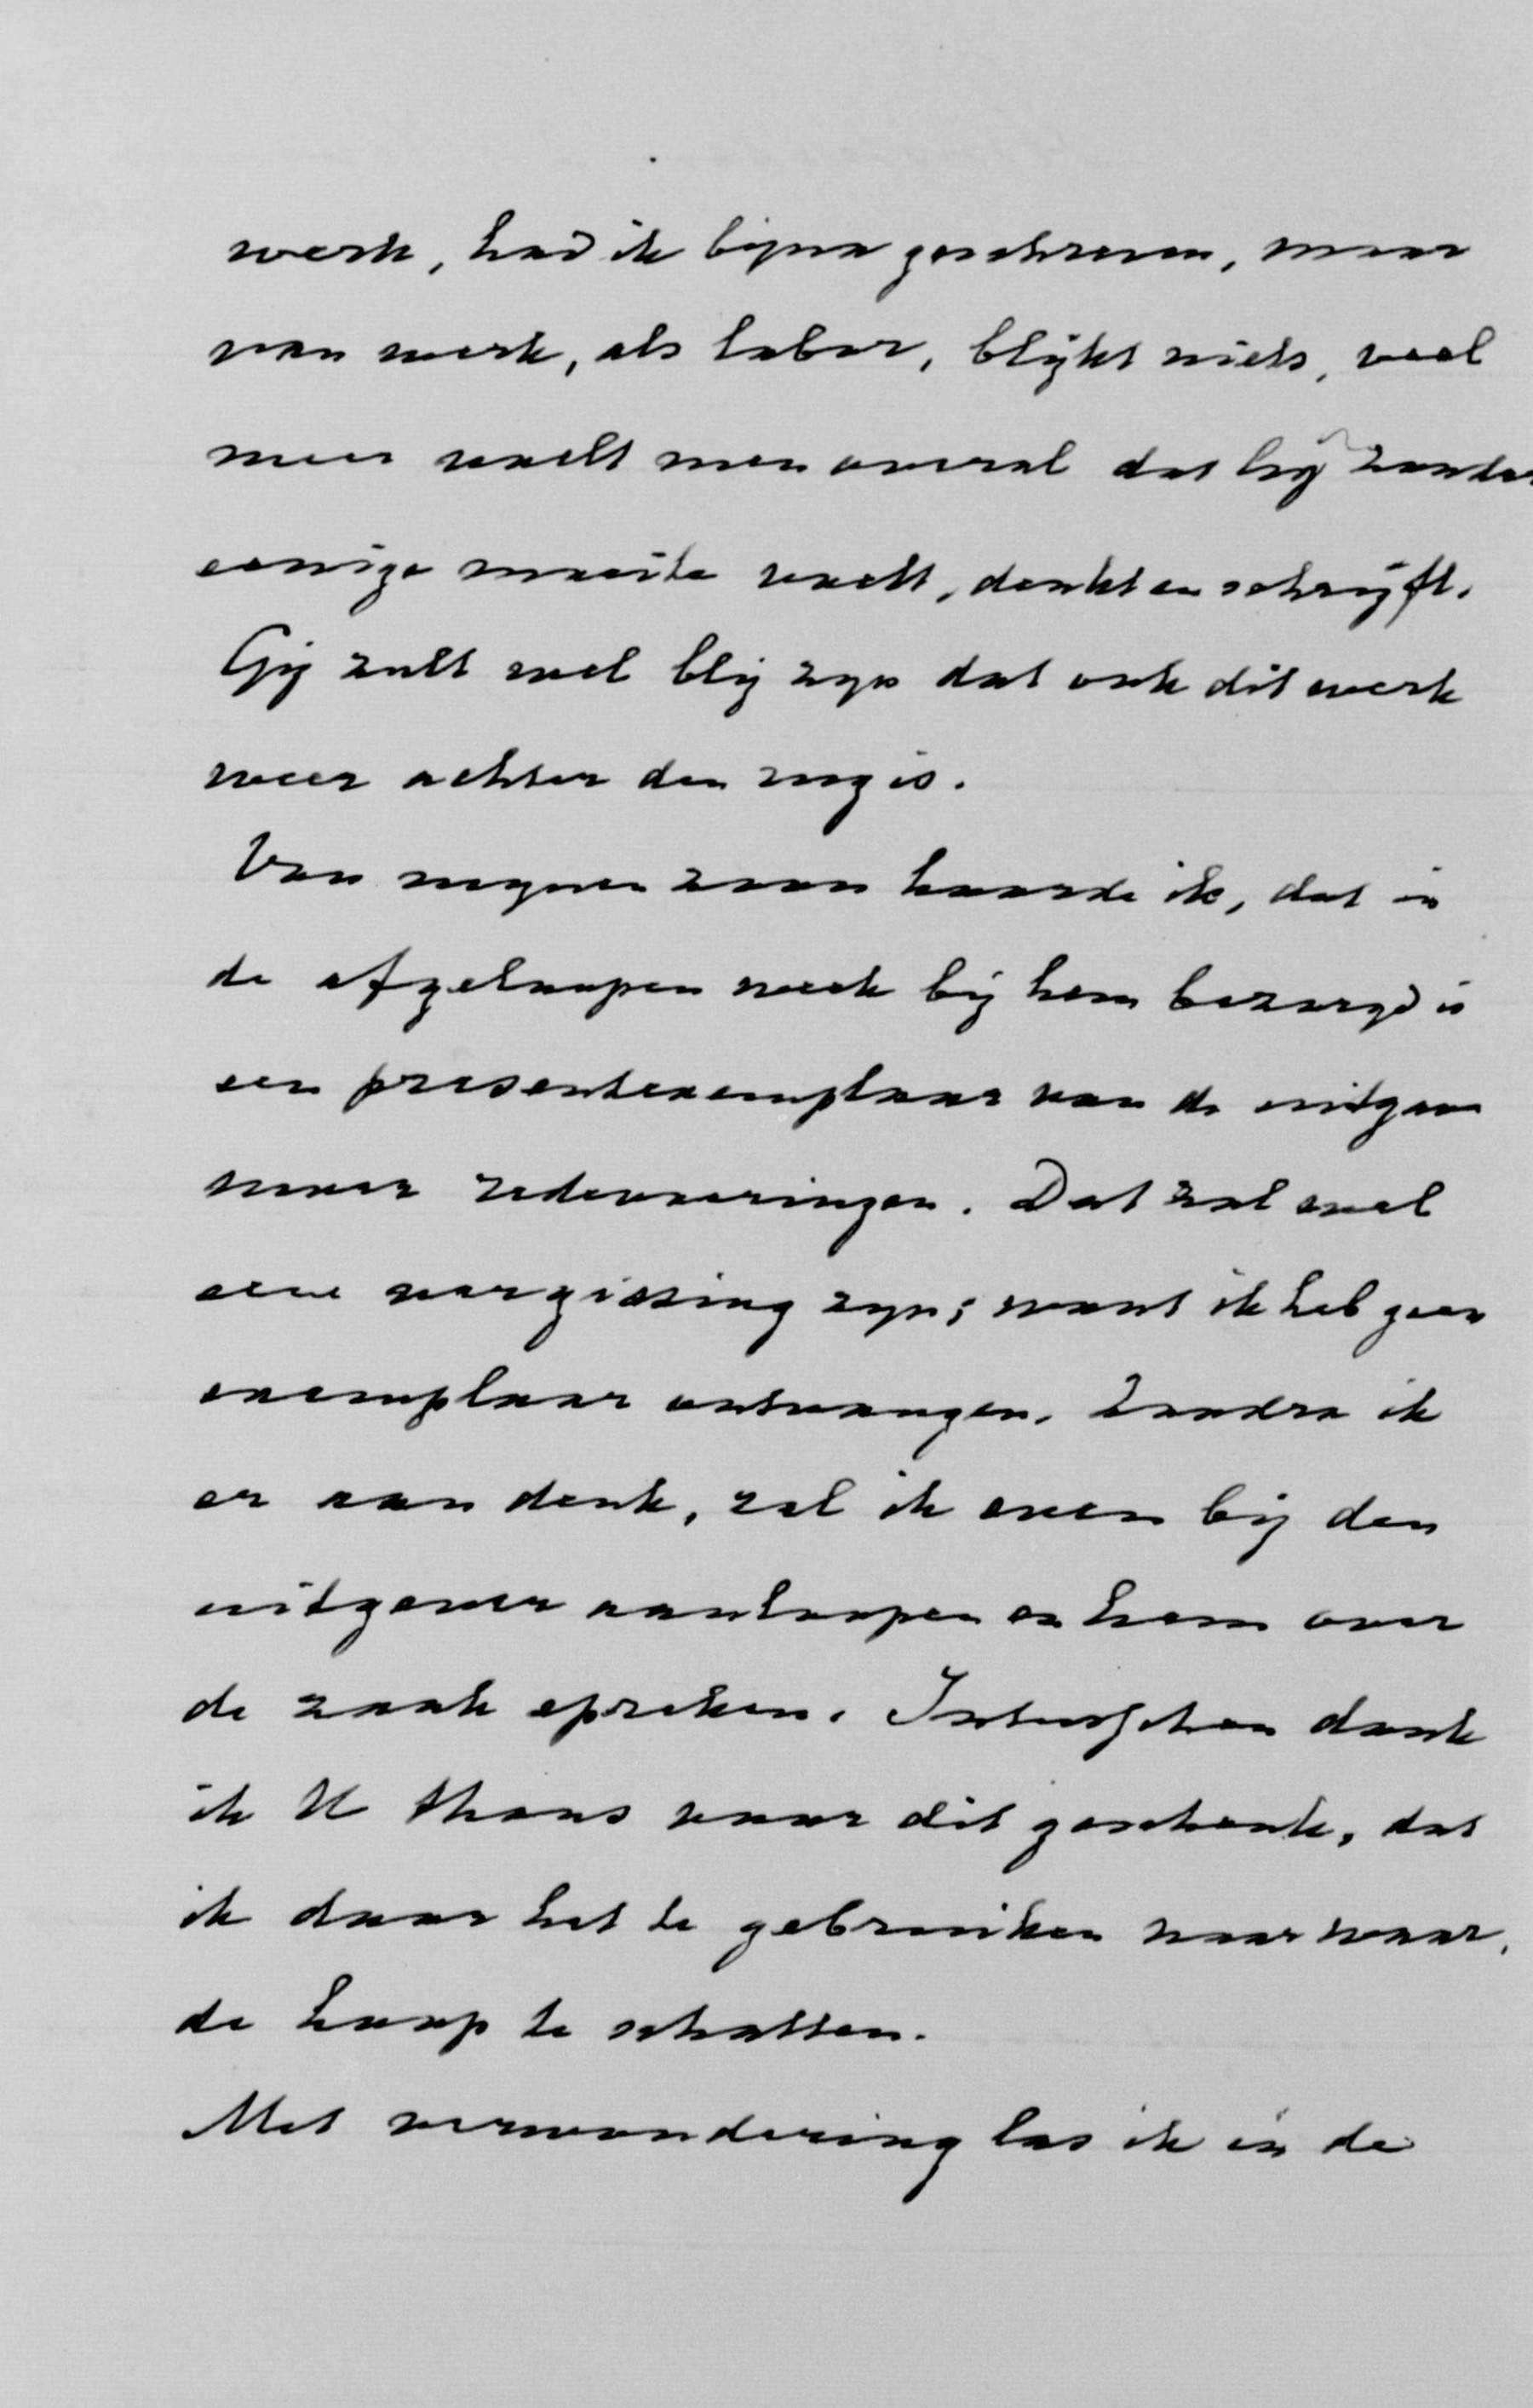 werk, had ik bijna geschreven, maar
van werk, als labor, blijkt niets, veel
meer voelt men overal dat hij zonder
eenige moeite voelt, denkt en schrijft.
Gij zult wel blij zijn dat ook dit werk
weer achter den rug is.
Van mijnen zoon hoorde ik, dat in
de afgeloopen week bij hem bezorgd is
een presentexemplaar van de uitgave
uwer redevoeringen. Dat zal wel
eene vergissing zijn; want ik heb geen
exemplaar ontvangen. Zoodra ik
er aan denk, zal ik even bij den
uitgever aanloopen en hem over
de zaak spreken. Intusschen dank
ik U thans voor dit geschenk, dat
ik door het te gebruiken naar waar,
de hoop te schatten.
Met verwondering las ik in de